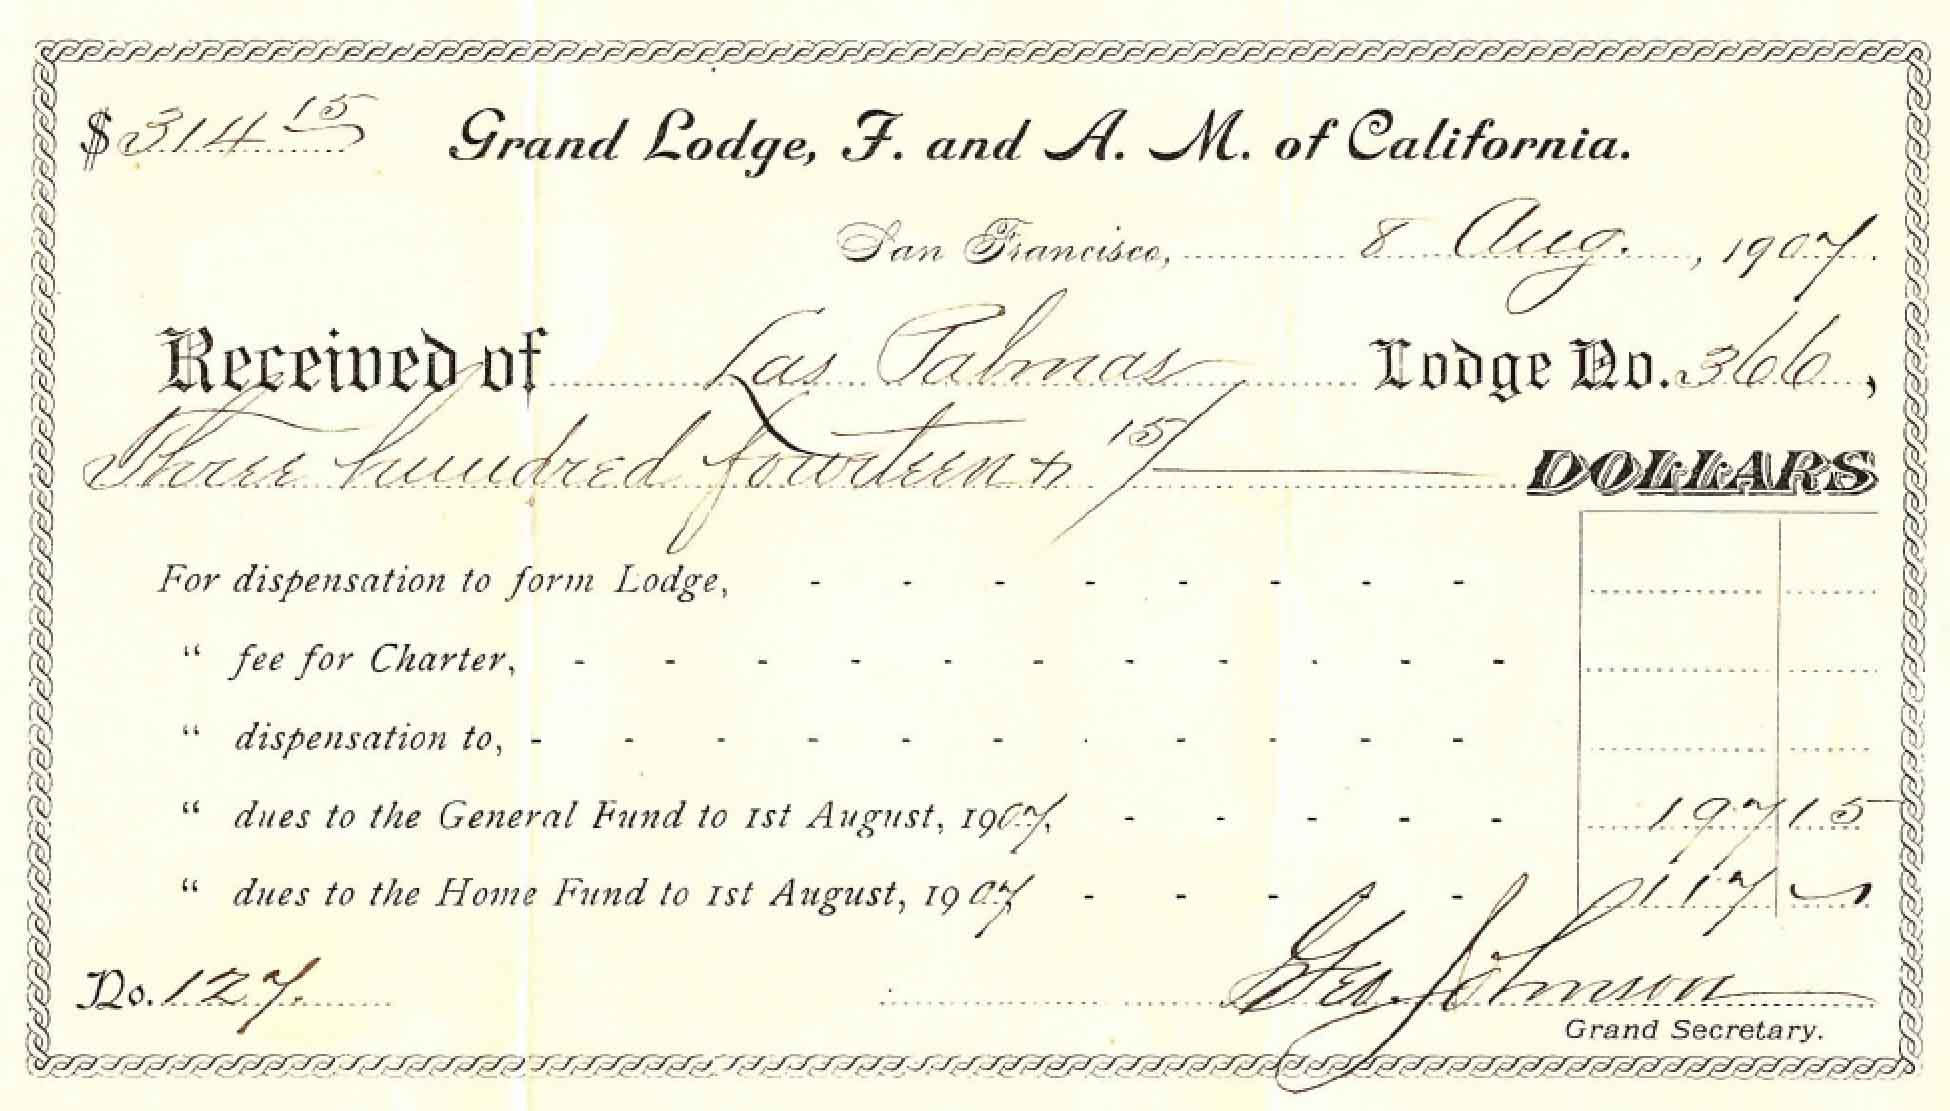 $ 314 15 Grand Lodge, F. and A. M. of California.
San Francisco, 8 Aug., 1907.
Received of Las Palmas Lodge No. 366,
Three hundred fourteen & 15/ DOLLARS
For dispensation to form Lodge, - - - - - - - -
“ fee for Charter, - - - - - - - - - - -
“ dispensation to, - - - - - - - - - - -
“ dues to the General Fund to 1st August, 1907, - - - - - 197 15
“ dues to the Home Fund to 1st August, 1907, - - - - - 117 -
No. 127. Geo. Johnson
Grand Secretary.